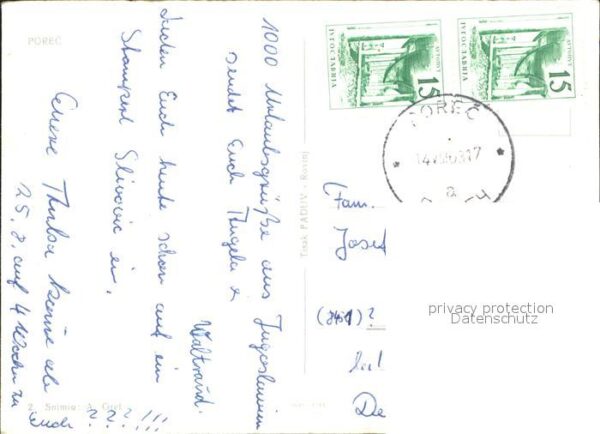 POREČ
1000 Urlaubsgrüße aus Jugoslawien
sendet Euch Angela &
Waltraud.
laden Euch heute schon auf ein
Stamperl Slivovic ein.
Eure Thilsa komme ab
25. 8. auf 4 Wochen zu
Euch ? ? ? !!!
2. Snimio: A.
Tisak PADUV - Rovinj
JUGOSLAVIA
15
JUGOSLAVIA
15
POREČ
17
a
(Fam.
Josef
(841)?
De
privacy protection
Datenschutz